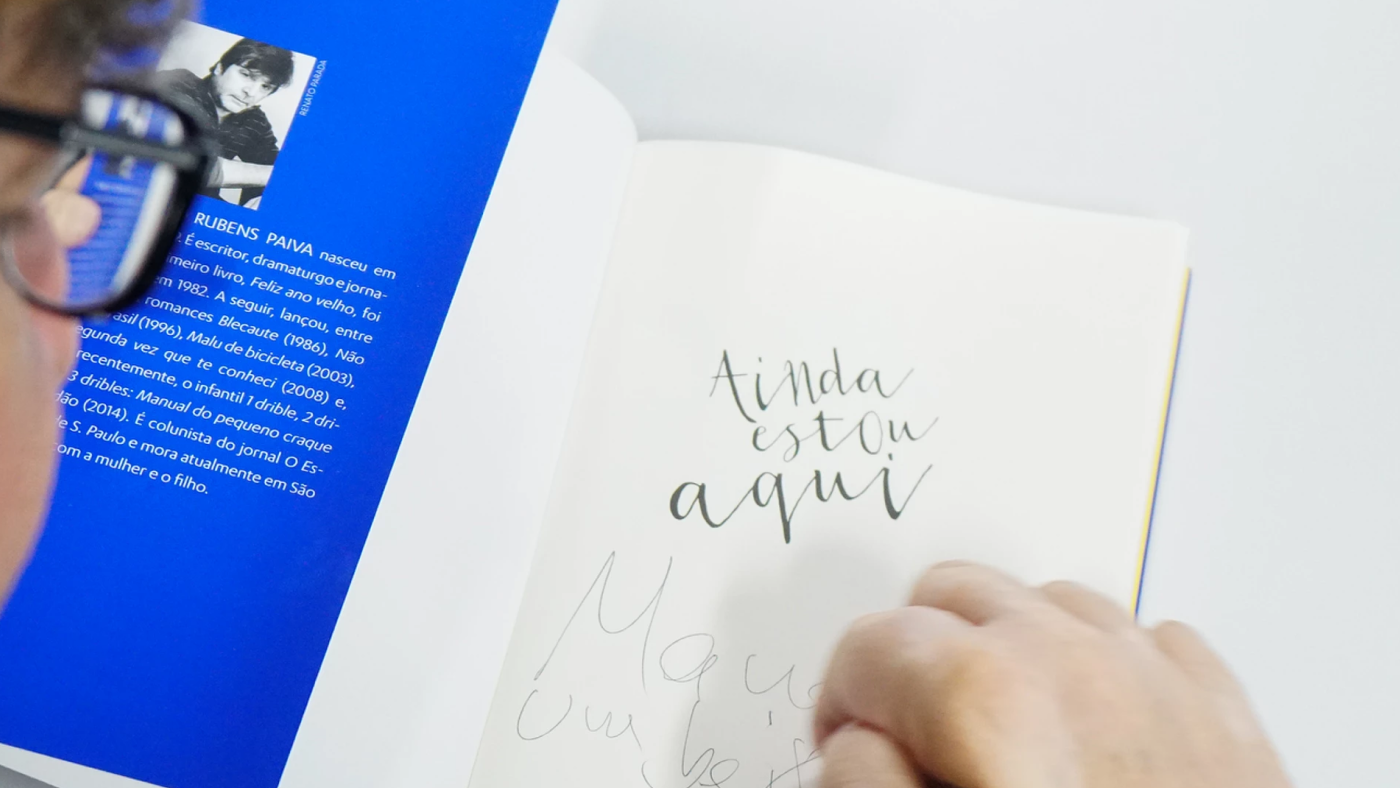 RENATO PARADA
RUBENS PAIVA nasceu em
É escritor, dramaturgo e jorna-
meiro livro, Feliz ano velho, foi
em 1982. A seguir, lançou, entre
romances Blecaute (1986), Não
asil (1996), Malu de bicicleta (2003),
egunda vez que te conheci (2008) e,
recentemente, o infantil 1 drible, 2 dri-
3 dribles: Manual do pequeno craque
dão (2014). É colunista do jornal O Es-
de S. Paulo e mora atualmente em São
com a mulher e o filho.
Ainda
estou
aqui
um